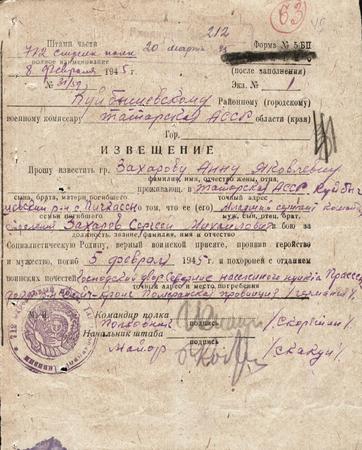 212
63
Штамп части
712 стрелк полк
20 марта
Форма № 5/БП
полное наименование
8 февраля 1945 г.
(после заполнения)
№ 31/59
Экз. № 1
Куйбышевскому Районному (городскому)
военному комиссару Татарская АССР области (края)
Гор.
ИЗВЕЩЕНИЕ
Прошу известить гр. Захарову Анну Яковлевну
фамилия, имя, отчество жены, отца,
проживающ. в Татарская АССР Куйбы
сына, брата, матери погибшего точный адрес
шевский р-н с Пичкассы что ее (его) Младший сержант коман
семьи погибшего муж, сын, отец, брат,
отделения Захаров Сергей Михайлович в бою за
должность звание, фамилия, имя и отчество
Социалистическую Родину, верный воинской присяге, проявив геройство
и мужество, погиб 5 февраля 1945 г. и похоронен с отданием
воинских почестей Господский двор населенного пункта
точный адрес и место погребения
провинция
М. П.
Командир полка
Подполковник /Скоришин/
подпись
Начальник штаба
майор /Скакун/
подпись